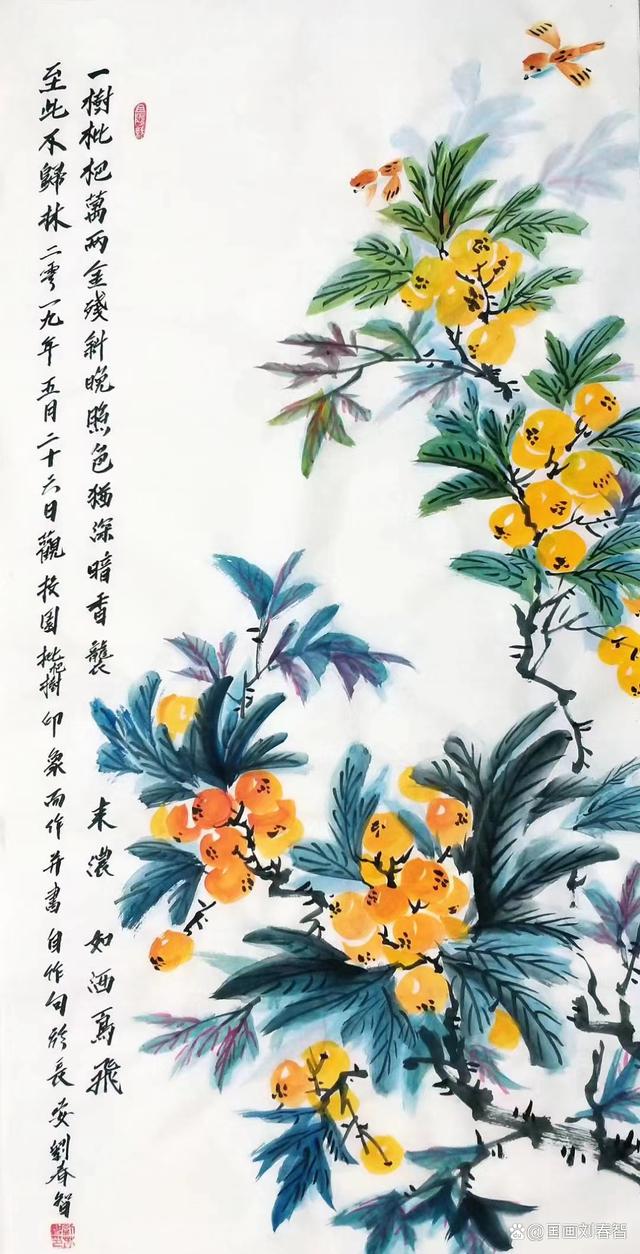 一樹枇杷萬兩金殘斜晚照色猶深暗香襲来濃如酒鳥飛
至此不歸林二零一九年五月二十六日觀校園枇杷樹印象而作并書自作句於長安劉春智
@国画刘春智